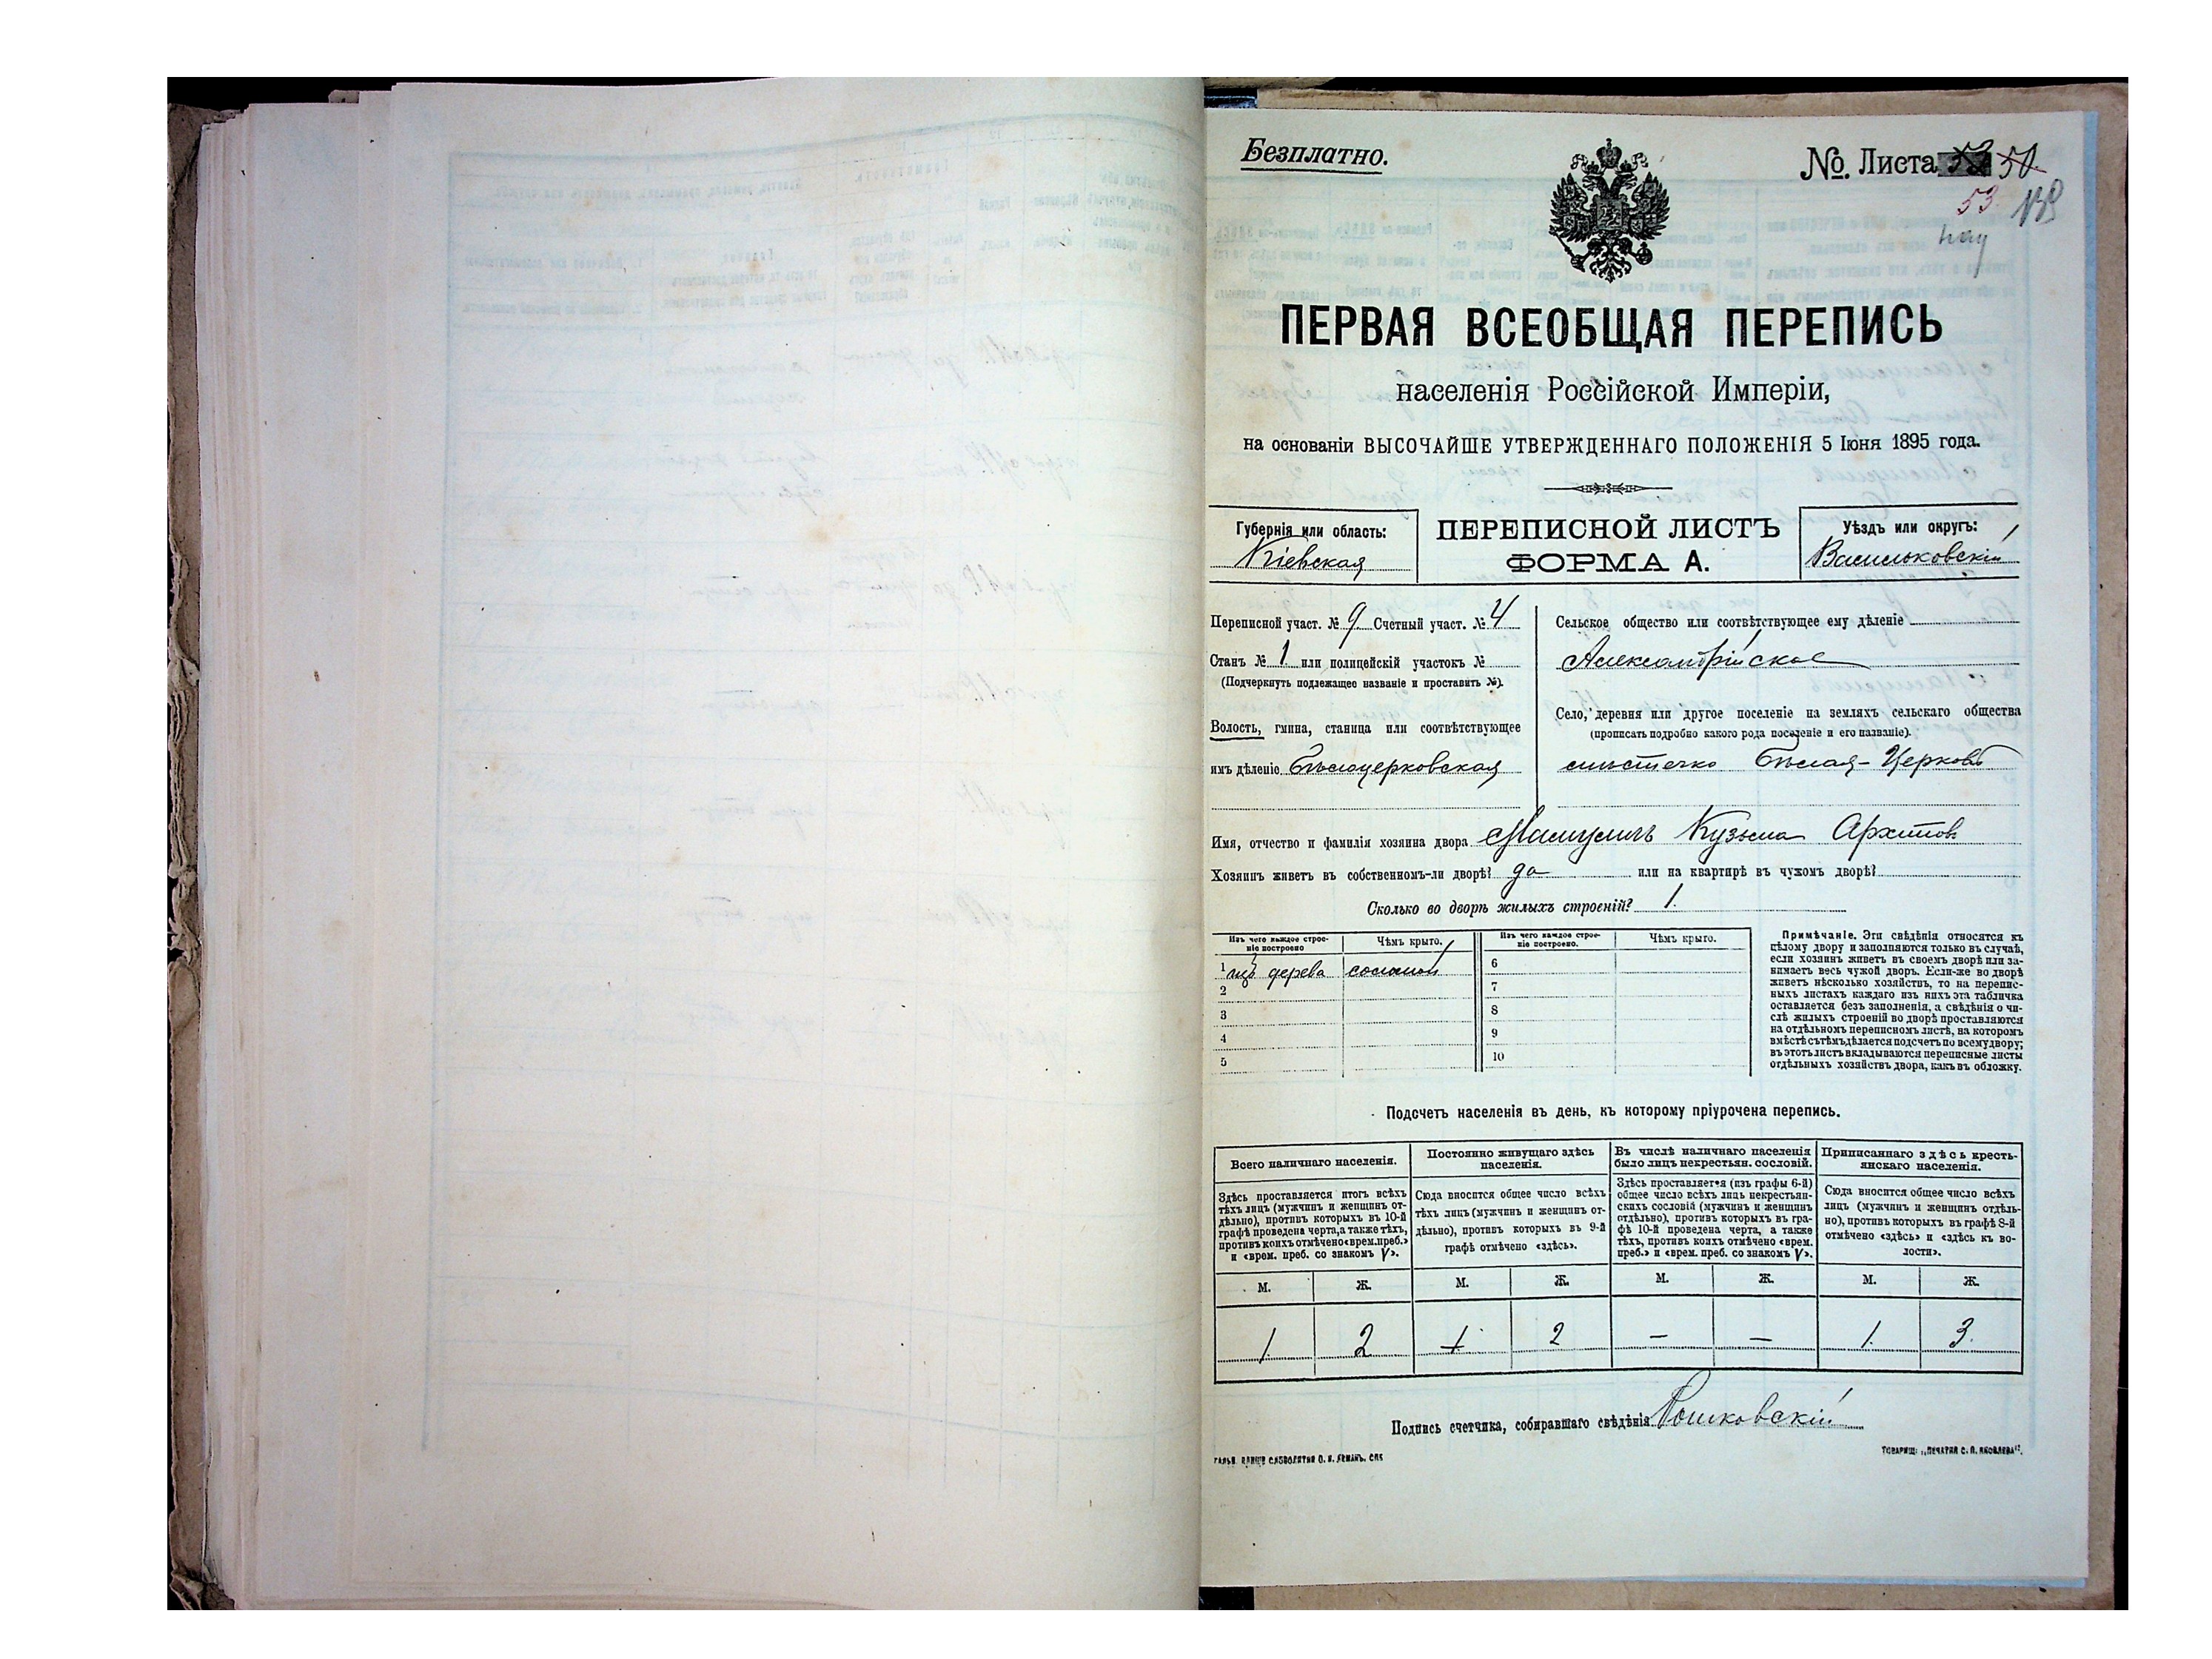 Безплатно.
№. Листа 50
53. 139
ПЕРВАЯ ВСЕОБЩАЯ ПЕРЕПИСЬ
населенія Россійской Имперіи,
на основаніи ВЫСОЧАЙШЕ УТВЕРЖДЕННАГО ПОЛОЖЕНІЯ 5 Іюня 1895 года.
Губернія или область:
Кіевская
ПЕРЕПИСНОЙ ЛИСТЪ
ФОРМА А.
Уѣздъ или округъ:
Васильковскій
Переписной участ. № 9 Счетный участ. № 4
Станъ № 1 или полицейскій участокъ №
(Подчеркнуть подлежащее названіе и проставить №).
Волость, гмина, станица или соотвѣтствующее
имъ дѣленіе Бѣлоцерковская
Сельское общество или соотвѣтствующее ему дѣленіе
Александрійское
Село, деревня или другое поселеніе на земляхъ сельскаго общества
(прописать подробно какого рода поселеніе и его названіе).
мѣстечко Бѣлая-Церковь
Имя, отчество и фамилія хозяина двора Кузьма Архипов
Хозяинъ живетъ въ собственномъ-ли дворѣ? да или на квартирѣ въ чужомъ дворѣ?
Сколько во дворѣ жилыхъ строеній? 1.
Изъ чего каждое строе-
ніе построено
Чѣмъ крыто.
Изъ чего каждое строе-
ніе построено.
Чѣмъ крыто.
1 изъ дерева соломой
2
3
4
5
6
7
8
9
10
Примѣчаніе. Эти свѣдѣнія относятся къ
цѣлому двору и заполняются только въ случаѣ,
если хозяинъ живетъ въ своемъ дворѣ или за-
нимаетъ весь чужой дворъ. Если-же во дворѣ
живетъ нѣсколько хозяйствъ, то на перепис-
ныхъ листахъ каждаго изъ нихъ эта табличка
оставляется безъ заполненія, а свѣдѣнія о чи-
слѣ жилыхъ строеній во дворѣ проставляются
на отдѣльномъ переписномъ листѣ, на которомъ
вмѣстѣ съ тѣмъ дѣлается подсчетъ по всему двору;
въ этотъ листъ вкладываются переписные листы
отдѣльныхъ хозяйствъ двора, какъ въ обложку.
Подсчетъ населенія въ день, къ которому пріурочена перепись.
Всего наличнаго населенія.
Здѣсь проставляется итогъ всѣхъ
тѣхъ лицъ (мужчинъ и женщинъ от-
дѣльно), противъ которыхъ въ 10-й
графѣ проведена черта, а также тѣхъ,
противъ коихъ отмѣчено «врем. преб.»
и «врем. преб. со знакомъ V».
Постоянно живущаго здѣсь
населенія.
Сюда вносится общее число всѣхъ
тѣхъ лицъ (мужчинъ и женщинъ от-
дѣльно), противъ которыхъ въ 9-й
графѣ отмѣчено «здѣсь».
Въ числѣ наличнаго населенія
было лицъ некрестьян. сословій.
Здѣсь проставляется (изъ графы 6-й)
общее число всѣхъ лицъ некрестьян-
скихъ сословій (мужчинъ и женщинъ
отдѣльно), противъ которыхъ въ гра-
фѣ 10-й проведена черта, а также
тѣхъ, противъ коихъ отмѣчено «врем.
преб.» и «врем. преб. со знакомъ V».
Приписаннаго здѣсь кресть-
янскаго населенія.
Сюда вносится общее число всѣхъ
лицъ (мужчинъ и женщинъ отдѣль-
но), противъ которыхъ въ графѣ 8-й
отмѣчено «здѣсь» и «здѣсь къ во-
лости».
М. Ж. М. Ж. М. Ж. М. Ж.
1. 2 1 2 — — 1. 3.
Подпись счетчика, собиравшаго свѣдѣнія
ТОВАРИЩ. „ПЕЧАТНЯ С. П. ЯКОВЛЕВА“.